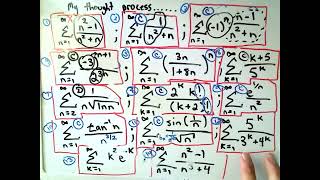 My thought process.....
① ∞ Σ n=1 n²-1 / n²+n ② ∞ Σ n=1 1 / n²+n ③ ∞ Σ n=1 (-1)ⁿ n-1 / n²+n
∞ Σ n=1 (-3)ⁿ⁺¹ / 2³ⁿ ∞ Σ n=1 (3n / 1+8n)ⁿ ∞ Σ k=1 k+5 / 5ᵏ
∞ Σ n=2 1 / n√ln n ∞ Σ k=1 2ᵏ k! / (k+2)! ∞ Σ n=1 e^(1/n) / n²
∞ Σ n=1 tan⁻¹n / n^(3/2) ∞ Σ n=1 sin(1/n) / √n ∞ Σ k=1 5ᵏ / 3ᵏ+4ᵏ
∞ Σ k=1 k² e⁻ᵏ ∞ Σ n=1 n²-1 / n³+4